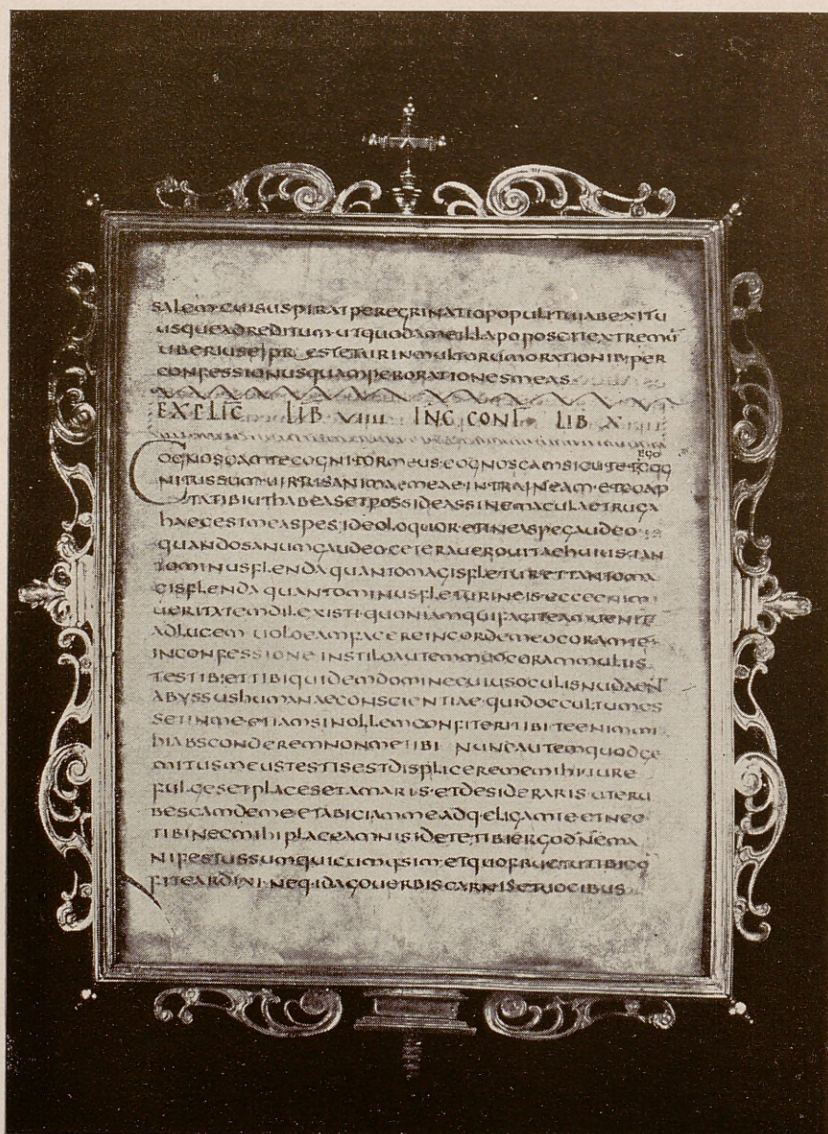 SALEM·CUISUSPIRATPEREGRINATIOPOPULITUIABEXITU
USQUEADREDITUMUTQUODAMEILLAPOPOSCITEXTREMŪ
UBERIUSEIPRESTETURINMULTORUMORATIONIB·PER
CONFESSIONUSQUAMPERORATIONESMEAS
EXPLIC LIB VIIII INC CONF LIB X
EGO
COGNOSCAMTECOGNITORMEUS·COGNOSCAMSICUTETCOG
NITUSSUM·UIRTUSANIMAEMEAE·INTRAINEAM·ETCOAP
TATIBIUTHABEASETPOSSIDEASSINEMACULAETRUGA
HAECESTMEASPES·IDEOLOQUOR·ETINEASPEGAUDEO·
QUANDOSANUMGAUDEO·CETERAUEROUITAEHUIUS·TAN
TOMINUSFLENDAQUANTOMAGISFLETURETTANTOMA
GISFLENDAQUANTOMINUSFLETURINEIS·ECCEENIM
UERITATEMDILEXISTI·QUONIAMQUIFACITEAMUENIT
ADLUCEM UOLOEAMFACEREINCORDEMEOCORAMTE·
INCONFESSIONE INSTILOAUTEMMEOCORAMMULTIS
TESTIB·ETTIBIQUIDEMDOMINECUIUSOCULISNUDAEST
ABYSSUSHUMANAECONSCIENTIAE·QUIDOCCULTUMES
SETINME·ETIAMSINOLLEMCONFITERITIBI·TEENIMMI
HIABSCONDEREMNONMETIBI NUNCAUTEMQUODGE
MITUSMEUSTESTISESTDISPLICEREMEMIHITURE
FULGESETPLACESETAMARIS·ETDESIDERARIS·UTERU
BESCAMDEME·ETABICIAMMEADQ·ELIGAMTE·ETNEC
TIBINECMIHIPLACEAMNISIDETE·TIBIERGODNEMA
NIFESTUSSUMQUICUMQ·SIM·ETQUOFRUCTUTIBICO
FITEARDIXI·NEQ·IDAGOUERBISCARNISETUOCIBUS